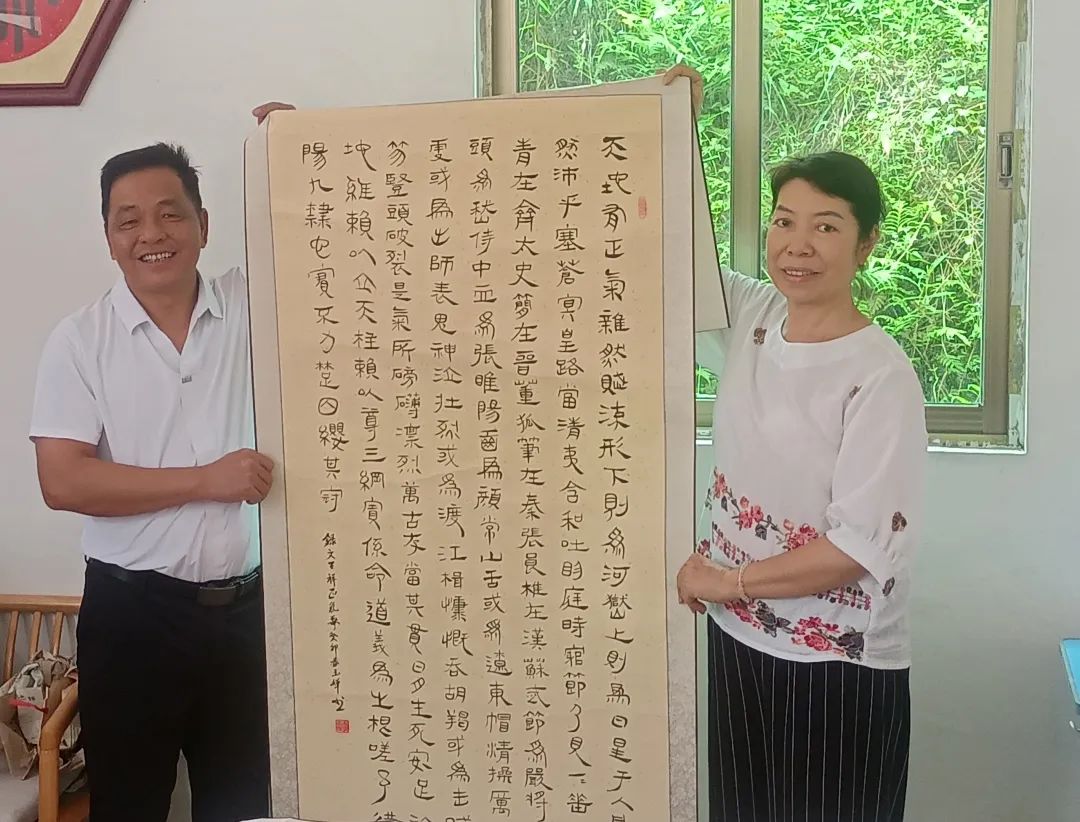 天地有正氣雜然賦流形下則為河嶽上則為日星于人曰
然沛乎塞蒼冥皇路當清夷含和吐明庭時窮節乃見一一垂
青在齊太史簡在晉董狐筆在秦張良椎在漢蘇武節為嚴將
頭為嵇侍中血為張睢陽齒為顏常山舌或為遼東帽清操厲
雪或為出師表鬼神泣壯烈或為渡江楫慷慨吞胡羯或為
笏豎頭破裂是氣所磅礴凜烈萬古存當其貫日月生死安足
地維賴以立天柱賴以尊三綱實係命道義為之根嗟予
陽九隸也實不力楚囚纓其
錄文天祥正氣歌癸卯春